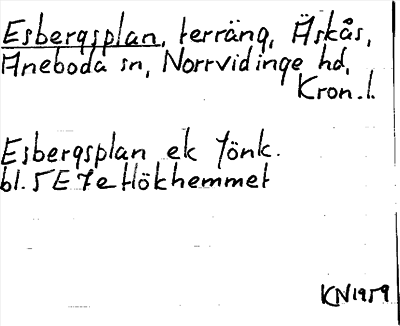 Esbergsplan, terräng, Äskås,
Aneboda sn, Norrvidinge hd,
Kron.l.
Esbergsplan ek Jönk.
bl. 5 E 7e Hökhemmet
KN1959